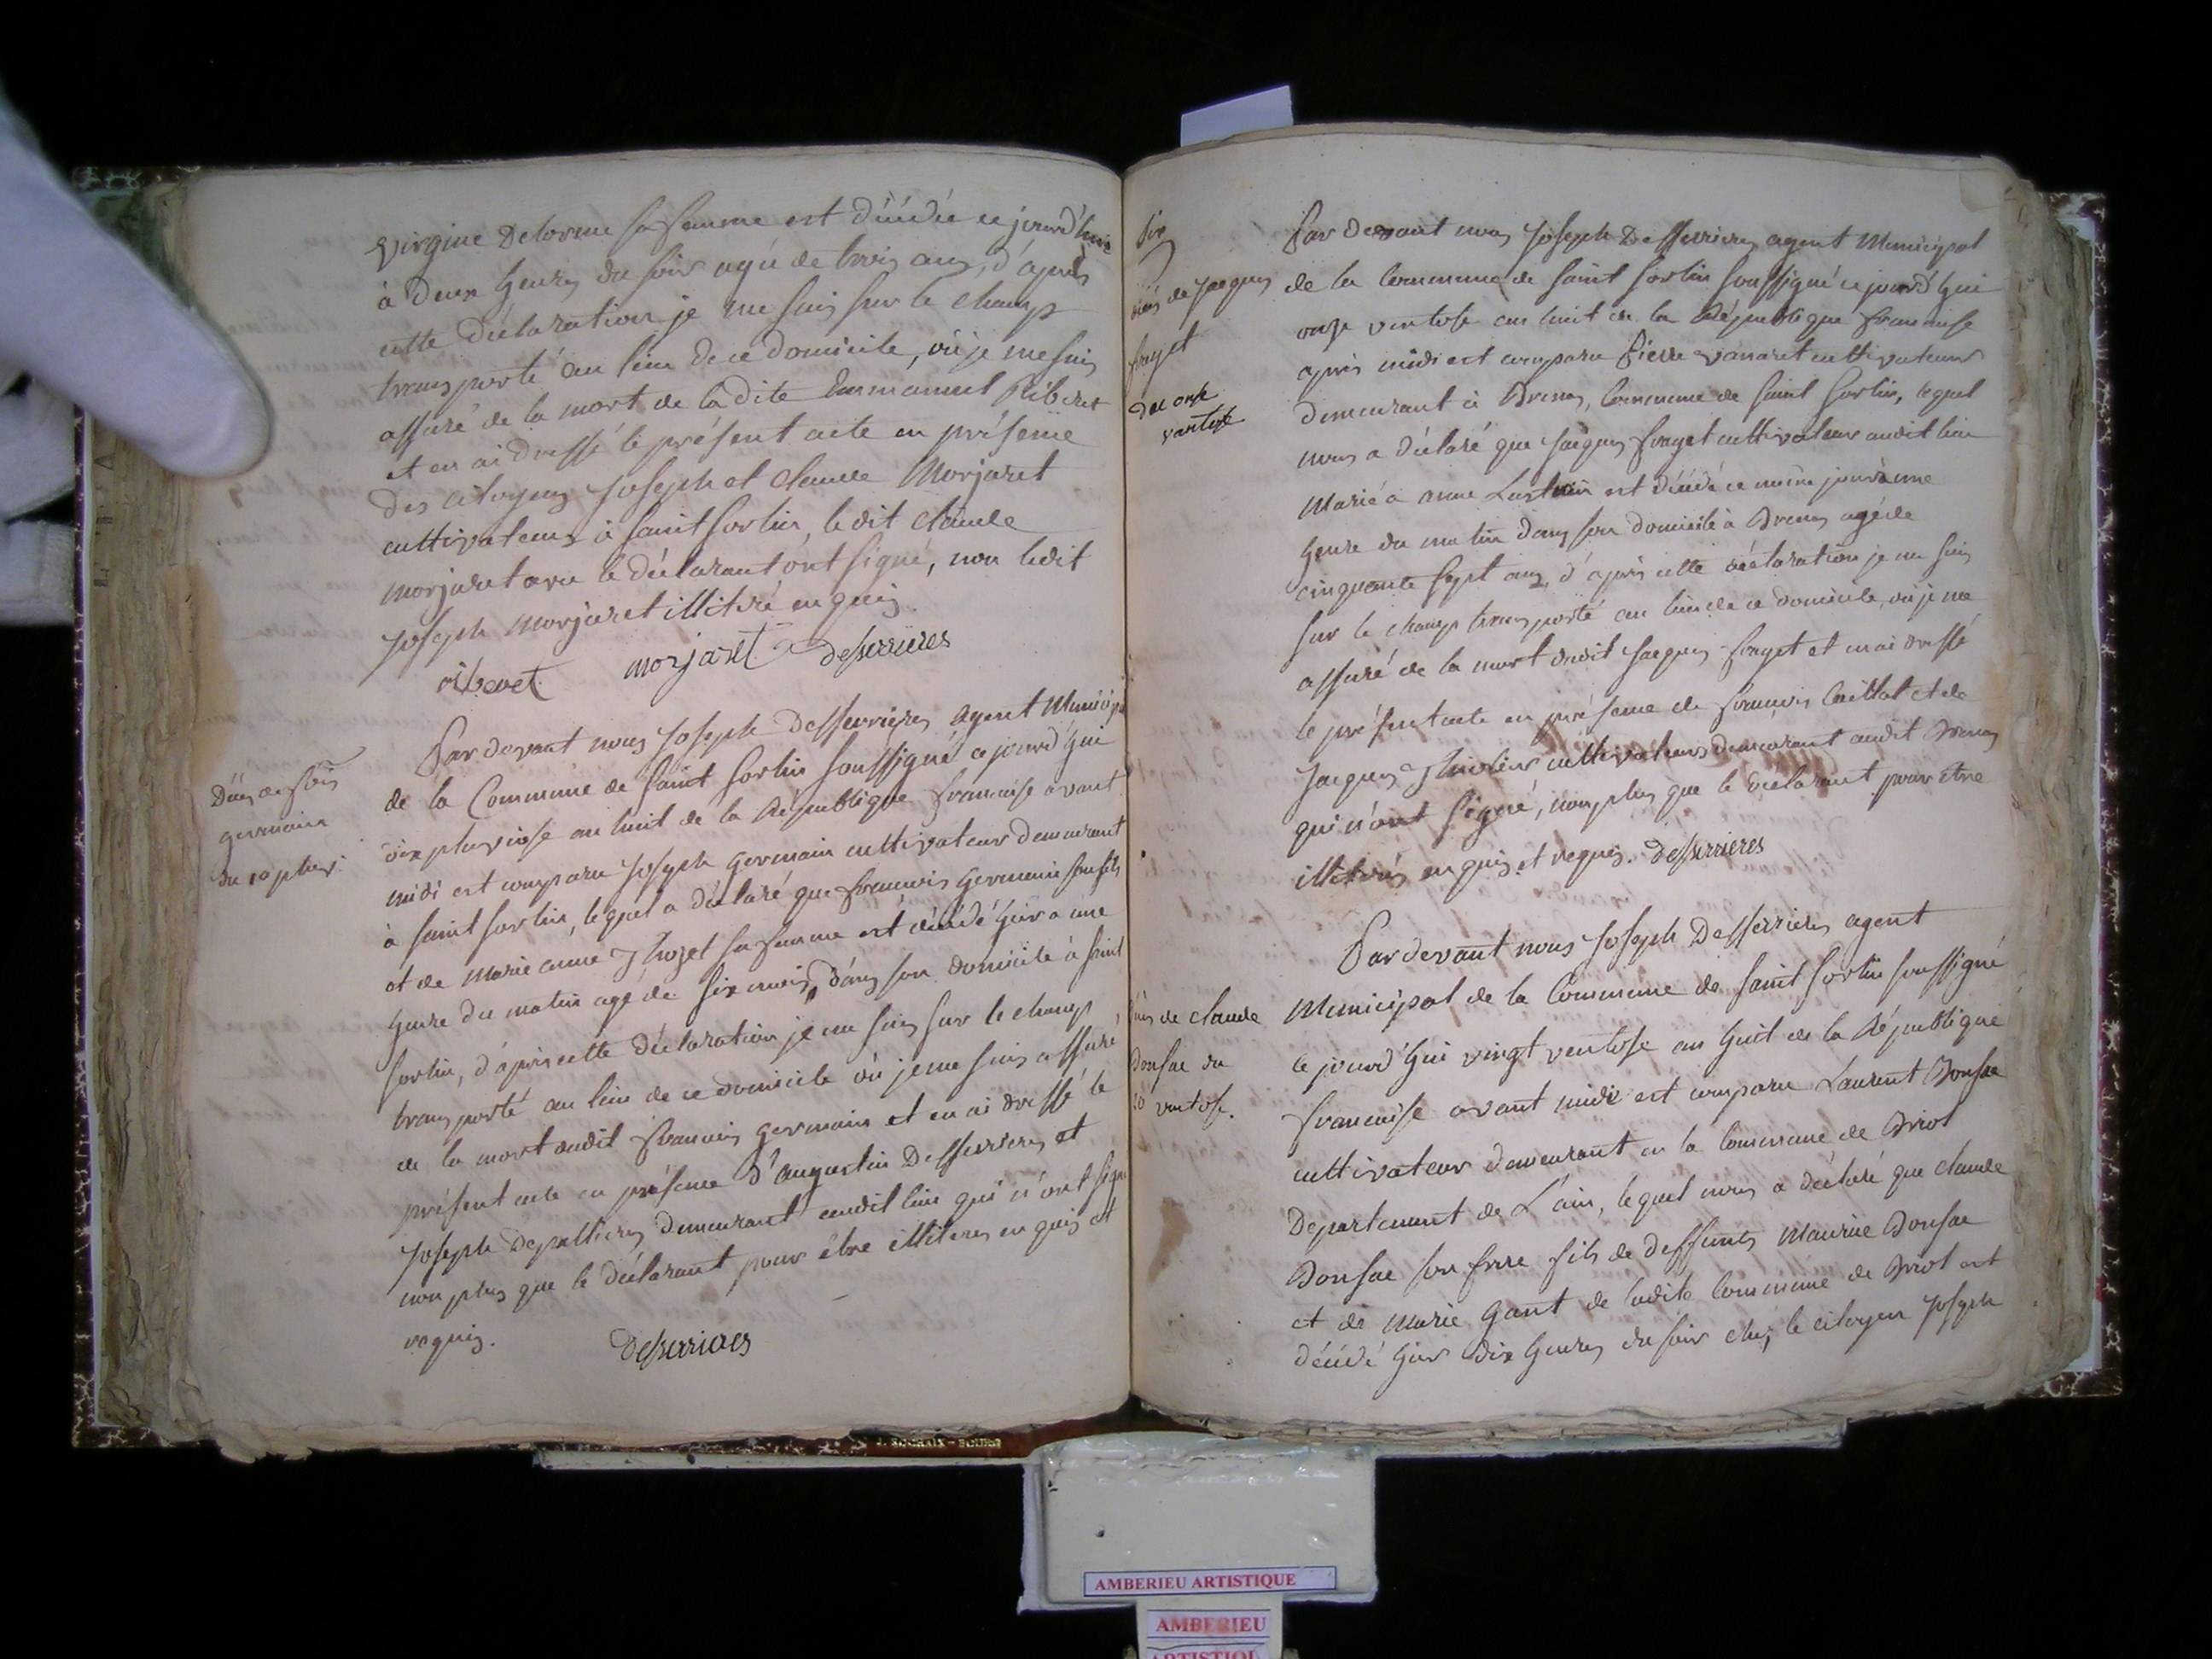 Virgine Delorme sa femme est décédée ce jourd'hui
à deux heures du soir agée de trois ans, d'après
cette déclaration je me suis sur le champ
transporté au lieu de ce domicile, où je me suis
assuré de la mort de la dite Emmanuel Ribevet
et en ai dressé le présent acte en présence
des citoyens Joseph et claude Morjaret
cultivateurs à saint sorlin, le dit claude
morjaret avec le déclarant ont signé, non ledit
Joseph morjaret illitéré enquis
ribevet morjaret Desserrieres
Décés de fois
germain
du 10 pluv:
Par devant nous Joseph Desserrieres agent Municipal
de la Commune de saint sorlin soussigné ce jourd'hui
dix pluviose an huit de la République francaise avant
midi est comparu Joseph germain cultivateur demeurant
à saint sorlin, lequel a déclaré que francois germain son fils
et de marie anne Thozet sa femme est décédé hier a une
heure du matin agé de six mois, dans son domicile à saint
sorlin, d'après cette déclaration je me suis sur le champ
transporté au lieu de ce domicile où je me suis assuré
de la mort dudit francois germain et en ai dressé le
présent acte en présence d'augustin Desserrieres et
Joseph Depallieres demeurant audit lieu qui n'ont signé
non plus que le déclarant pour être illiteres enquis et
requis.
Desserrieres
décés de jacques
fraget
du onze
vantose
Par devant nous Joseph Desserrieres agent Municipal
de la Commune de saint sorlin soussigné ce jourd'hui
onze ventose an huit de la République francaise
après midi est comparu Pierre vanaret cultivateur
demeurant à Drenas, Commune de saint sorlin, lequel
nous a déclaré que jacques fraget cultivateur audit lieu
marié à anne est décédé ce même jour à une
heure du matin dans son domicile à Drenas agé de
cinquante sept ans, d'après cette déclaration je me suis
sur le champ transporté au lieu de ce domicile, où je me
assuré de la mort dudit jacques fraget et en ai dressé
le présent acte en présence de francois Caillat et de
jacques cultivateurs demeurant audit Drenas
qui n'ont signé, non plus que le déclarant pour etre
illitérés enquis et requis. Desserrieres
décès de claude
Donsac du
20 ventose.
Par devant nous Joseph Desserrieres agent
Municipal de la Commune de saint sorlin soussigné
ce jourd'hui vingt ventose an huit de la République
francaise avant midi est comparu Laurent Donsac
cultivateur demeurant en la Commune de Briot
Departement de L'ain, lequel nous a déclaré que claude
Donsac son frere fils de deffunts Maurice Donsac
et de Marie gant de ladite Commune de Briot est
décédé hier dix heures du soir chez le citoyen Joseph
J. ROCHAIX - BOURG
AMBERIEU ARTISTIQUE
AMBERIEU
ARTISTIQUE